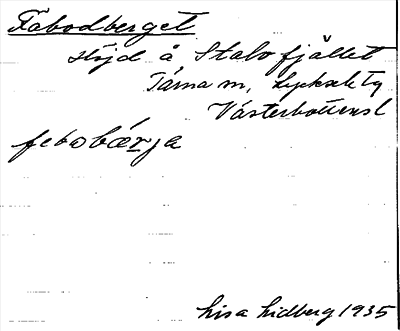 Fäbodberget
Höjd å Stalofjället
Tärna sn, Lycksele tg
Västerbottens l
febobärja
Lisa Lidberg 1935